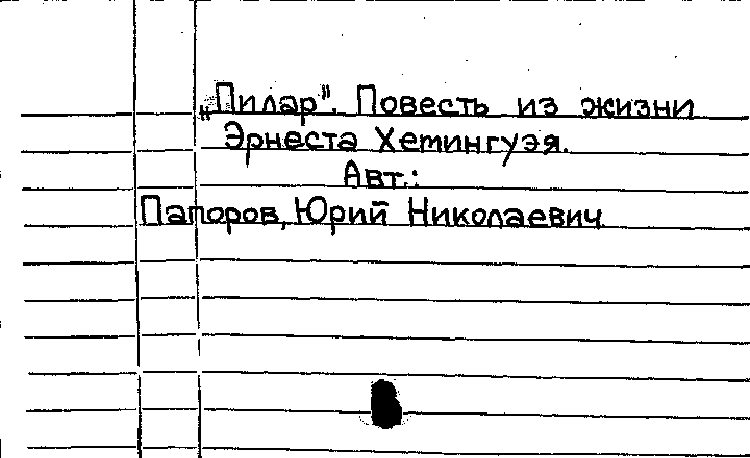 „Пилар". Повесть из жизни
Эрнеста Хемингуэя.
Авт.:
Папоров, Юрий Николаевич